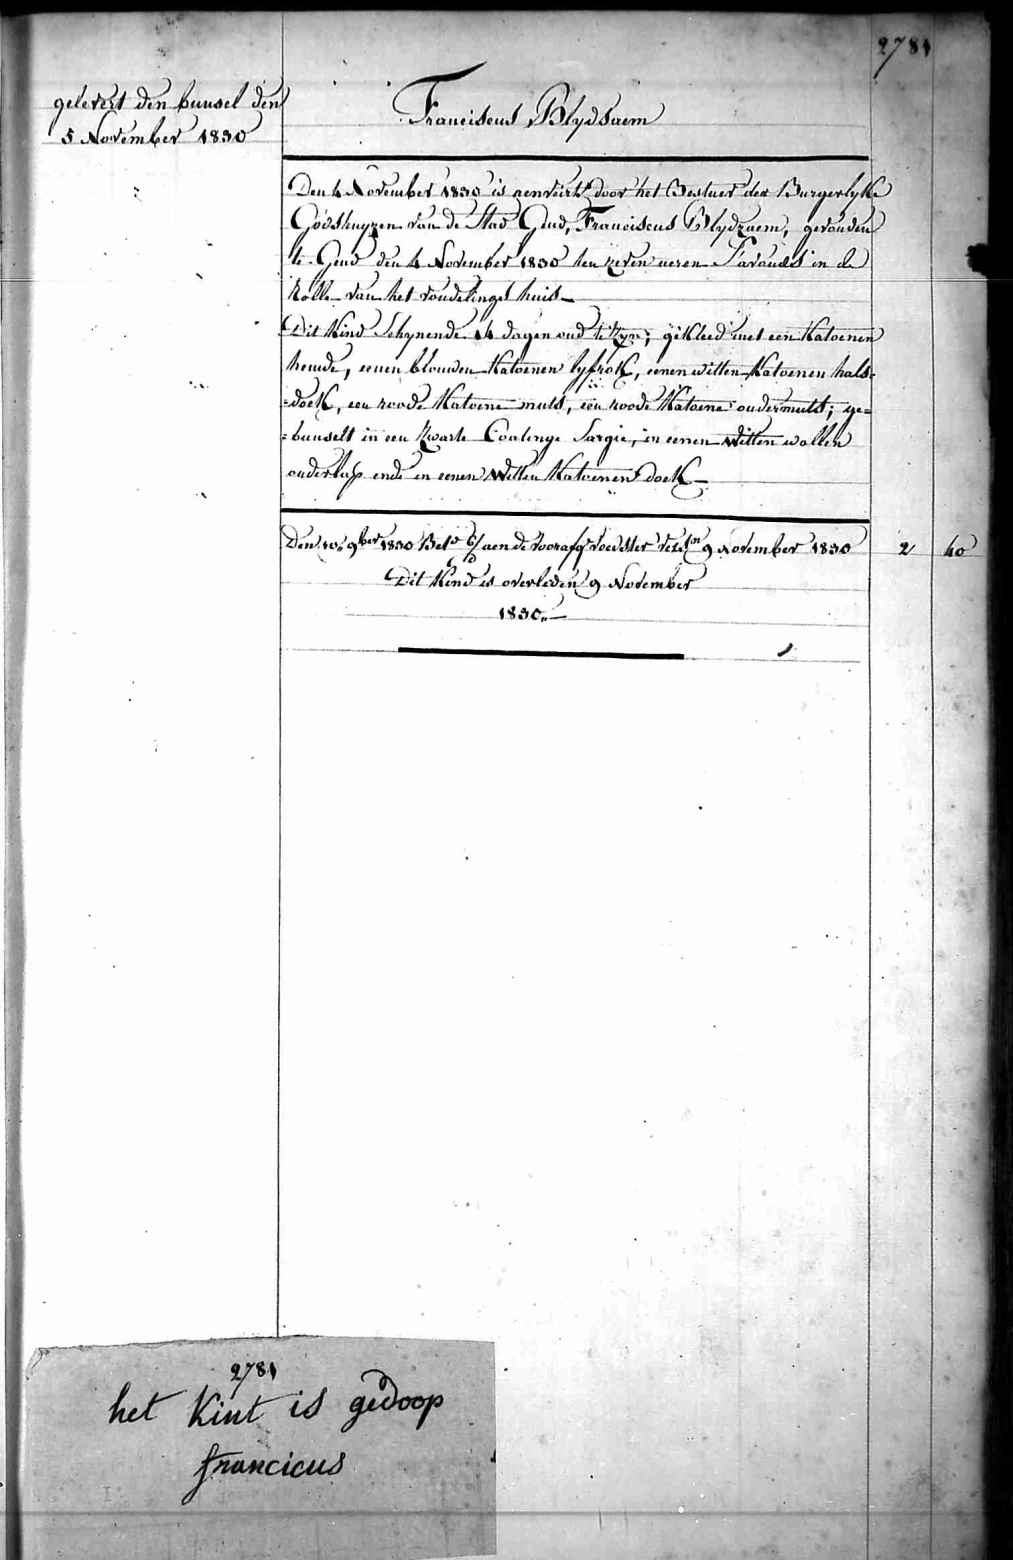 2781
gelevert den bunsel den
5 November 1830
Franciscus Blydsaem
Den 4 November 1830 is aenveirt door het Bestuer der Burgerlyke
Godshuyzen van de Stad Gend, Franciscus Blydzaem, gevonden
te Gend den 4 November 1830 ten zeven ueren s'avonds in de
Rolle van het vondelings huis
Dit Kind Schynende 14 dagen oud te Zyn; gekleed met een Katoenen
hemde, eenen blouwen Katoenen lyfrok, eenen witten Katoenen hals=
=doek, een roode Katoene muts, een roode Katoene ondermuts; ge=
=bunselt in een Zwarte Sargie, in eenen witten wollen
onderlap ende in eenen witten Katoenen doek
Den 10 9ber 1830 Bet° aen de voedster 9 November 1830 2 40
Dit Kind is overleden 9 November
1830.
2781
het Kint is gedoop
francicus